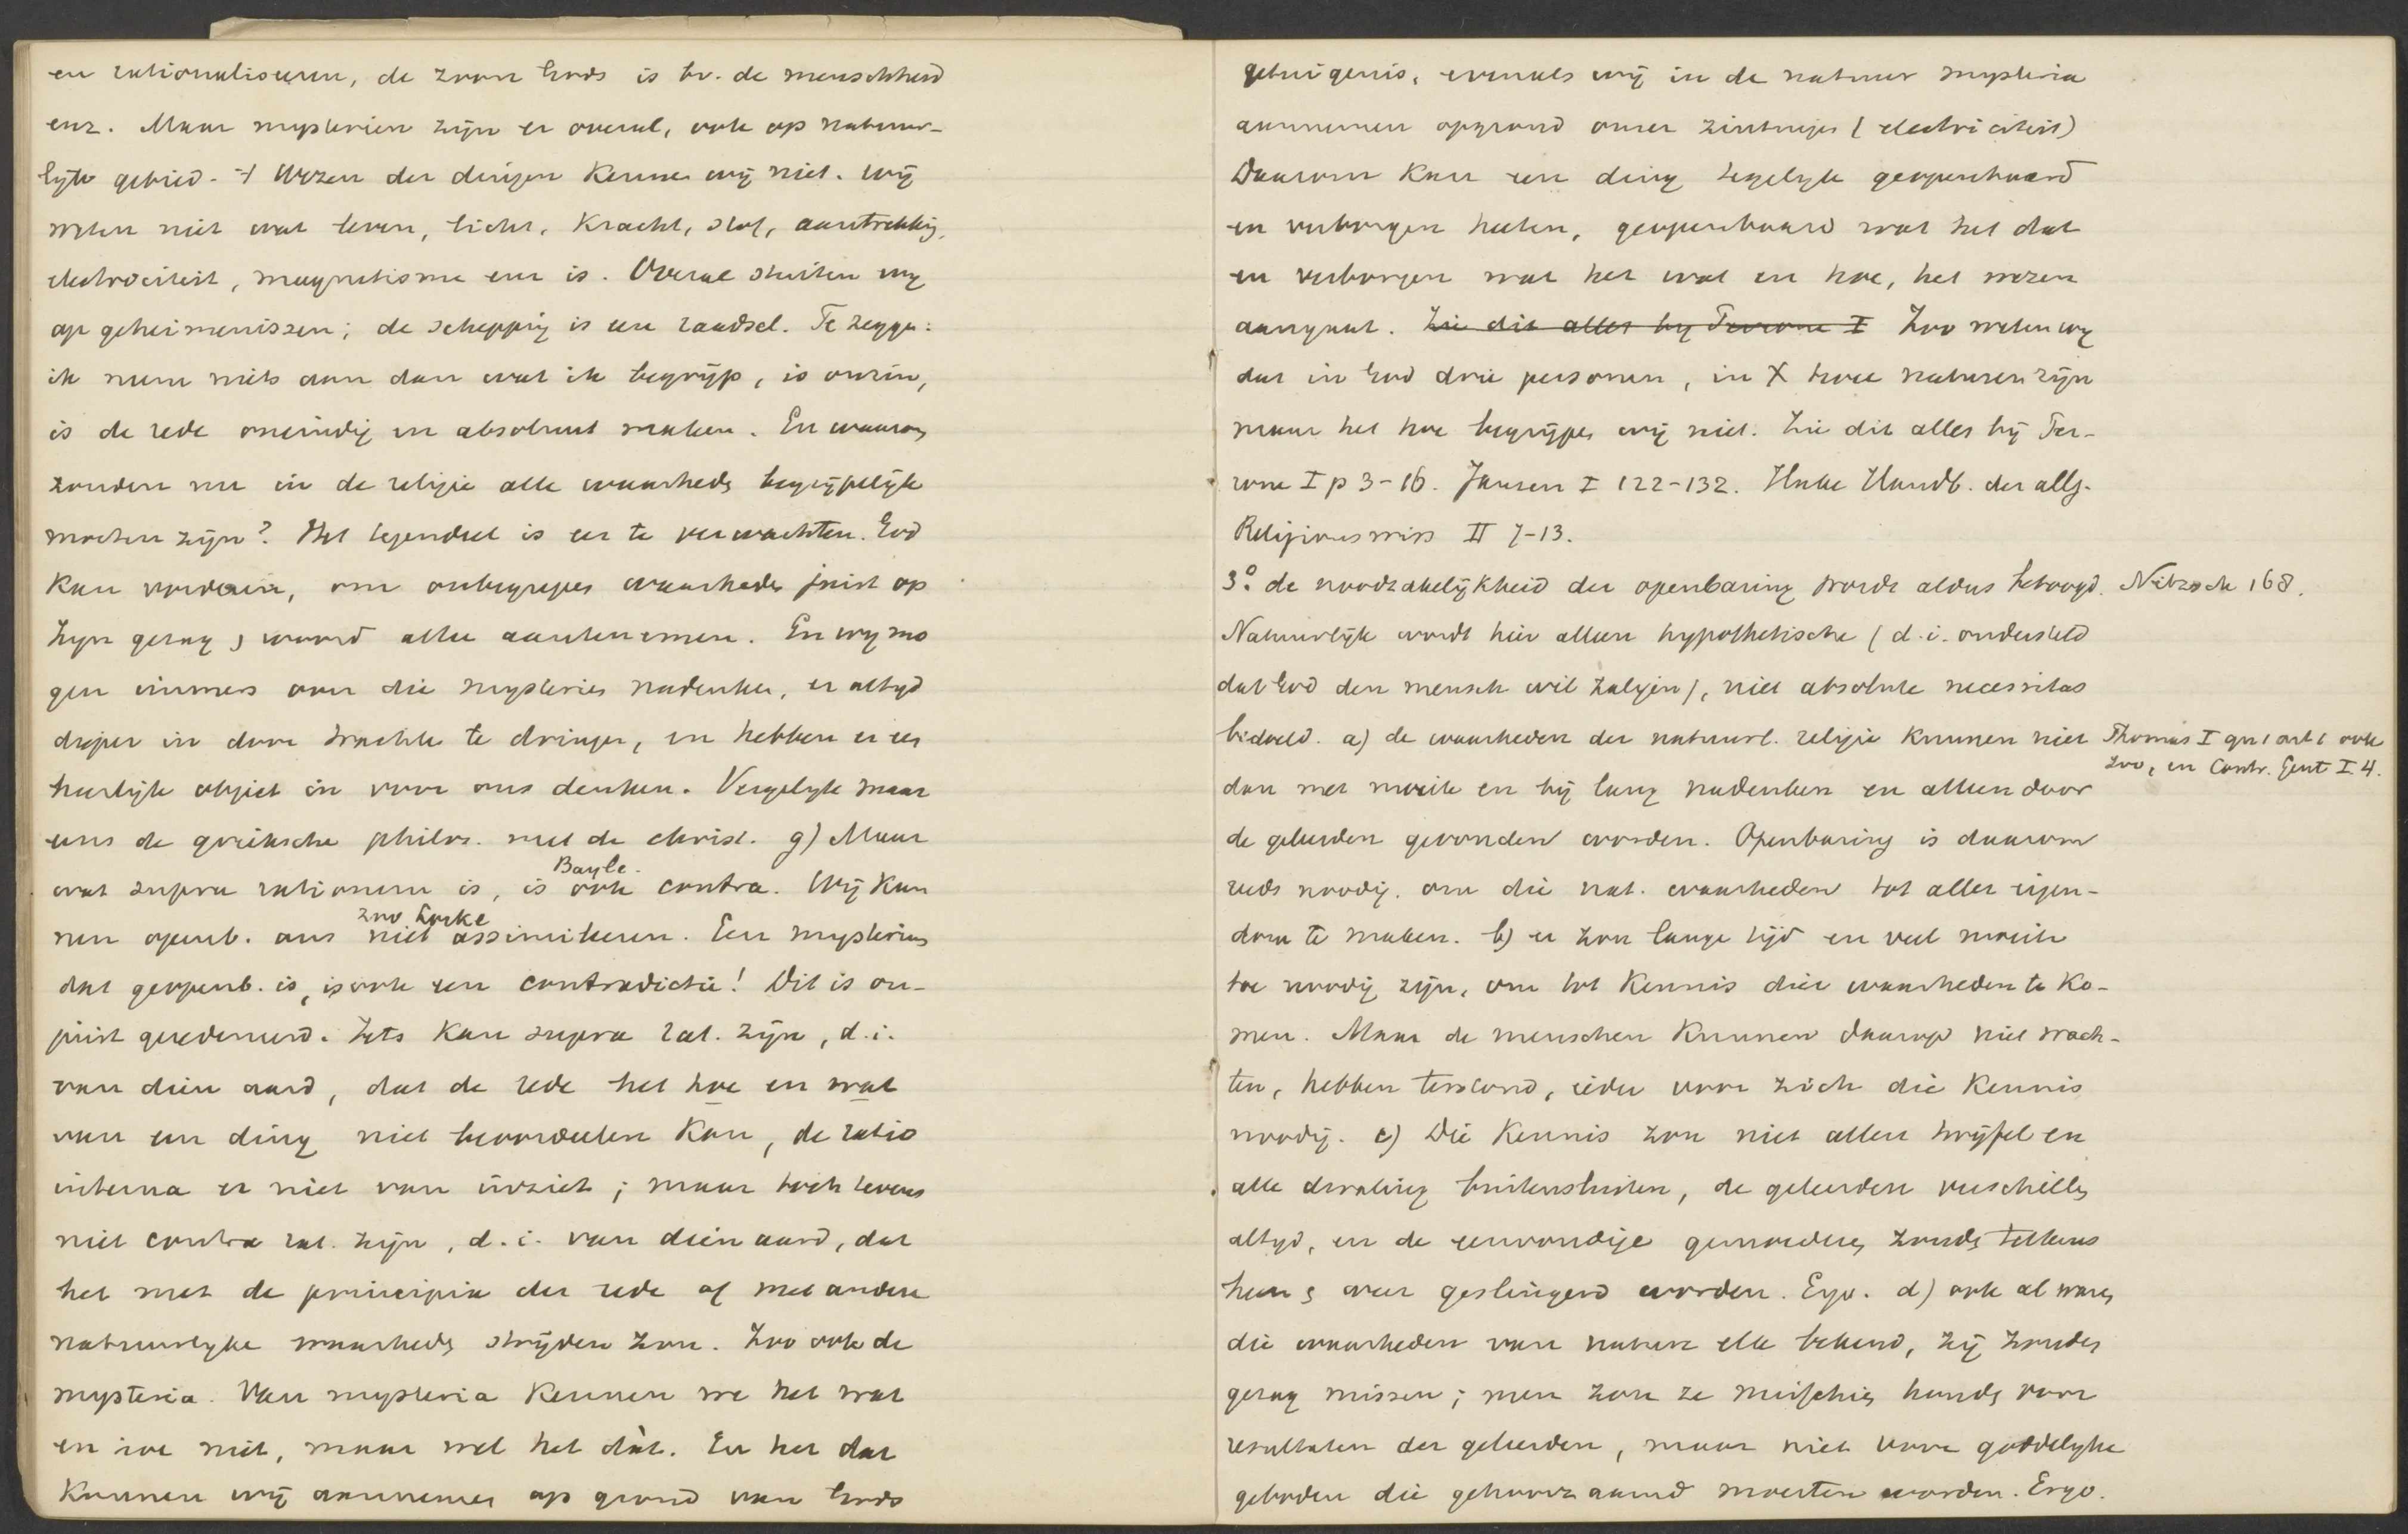 en rationaliseren, de zoon Gods is bv. de menschheid
enz. Maar mysterien zijn er overal, ook op natuur-
lijk gebied. 't Wezen der dingen kennen wij niet. Wij
weten niet wat leven, licht, kracht, stof, aantrekking,
electriciteit, magnetisme enz is. Overal stuiten wij
op geheimenissen; de schepping is een raadsel. Te zeggen:
ik neem niets aan dan wat ik begrijp, is onzin,
is de rede oneindig en absoluut maken. En waarom
zouden nu in de religie alle waarheden begrijpelijk
moeten zijn? Het tegendeel is eer te verwachten. God
kan vorderen, om onbegrepen waarheden juist op
zijn gezag & woord alleen aantenemen. En wij mo
gen immers over die mysteries nadenken, er altijd
dieper in door trachten te dringen, en hebben er een
heerlijk object in voor ons denken. Vergelijk maar
eens de grieksche philos. met de christ. g) Maar
Bayle.
wat supra rationem is, is ook contra. Wij kun
zoo Locke
nen openb. ons niet assimileren. Een mysterium
dat geopenb. is, is ook een contradictie! Dit is on-
juist geredeneerd. Iets kan supra rat. zijn, d.i.
van dien aard, dat de rede het hoe en wat
van een ding niet beoordeelen kan, de ratio
interna er niet van inziet; maar toch tevens
niet contra rat. zijn, d.i. van dien aard, dat
het met de principia der rede of met andere
natuurlijke waarheden strijden zou. Zoo ook de
mysteria. Van mysteria kennen we het wat
en hoe niet, maar wel het dàt. En het dat
kunnen wij aannemen op grond van Gods
getuigenis, evenals wij in de natuur mysteria
aannemen op grond onzer zintuigen (electriciteit)
Daarom kan een ding tegelijk geopenbaard
en verborgen heeten, geopenbaard wat het dat
en verborgen wat het wat en hoe, het wezen
aangaat. Zie dit alles bij Perrone I Zoo weten wij
dat in God drie personen, in X twee naturen zijn
maar het hoe begrijpen wij niet. Zie dit alles bij Per-
rone I p 3-16. Jansen I 122-132. Hake Handb. der allg.
Religionswiss II 7-13.
3º. de noodzakelijkheid der openbaring wordt aldus betoogd. Nitzsch 168.
Natuurlijk wordt hier alleen hypothetische (d.i. ondersteld
dat God den mensch wil zaligen), niet absolute necessitas
bedoeld. a) de waarheden der natuurl. religie kunnen niet
Thomas I qu 1 art 1 ook
zoo, en Contr. Gent I. 4.
dan met moeite en bij lang nadenken en alleen door
de geleerden gevonden worden. Openbaring is daarom
reeds noodig, om die nat. waarheden tot aller eigen-
dom te maken. b) er zou lange tijd en veel moeite
toe noodig zijn, om tot kennis dier waarheden te ko-
men. Maar de menschen kunnen daarop niet wach-
ten, hebben terstond, ieder voor zich die kennis
noodig. c) Die kennis zou niet allen twijfel en
alle dwaling buitensluiten, de geleerden verschillen
altijd, en de eenvoudige gemoederen zouden telkens
heen & weer geslingerd worden. Ergo. d) ook al waren
die waarheden van nature elk bekend, zij zouden
gezag missen; men zou ze misschien houden voor
resultaten der geleerden, maar niet voor goddelijke
geboden die gehoorzaamd moesten worden. Ergo.